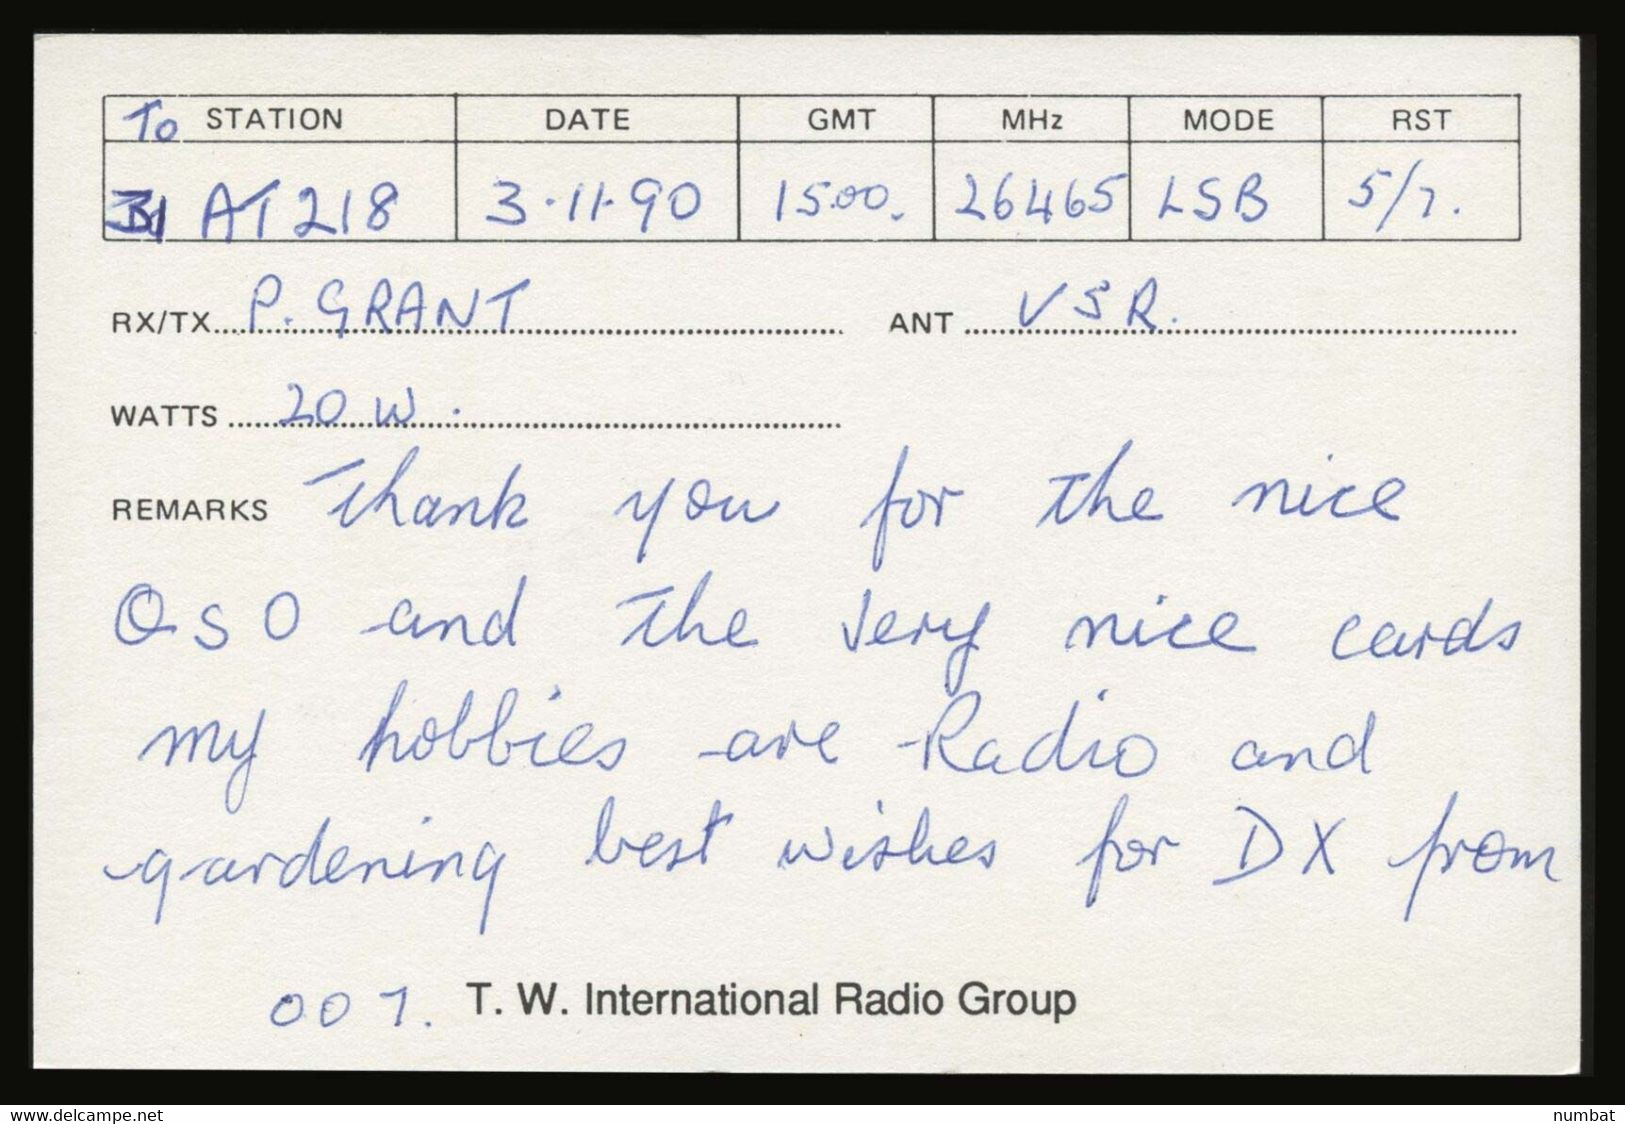 To STATION DATE GMT MHz MODE RST
31 AT 218 3.11.90 15.00. 26465 LSB 5/7.
RX/TX P. GRANT ANT VSR.
WATTS 20 W.
REMARKS Thank you for the nice
QSO and the very nice cards
my hobbies are Radio and
gardening best wishes for DX from
007. T. W. International Radio Group
www.delcampe.net numbat